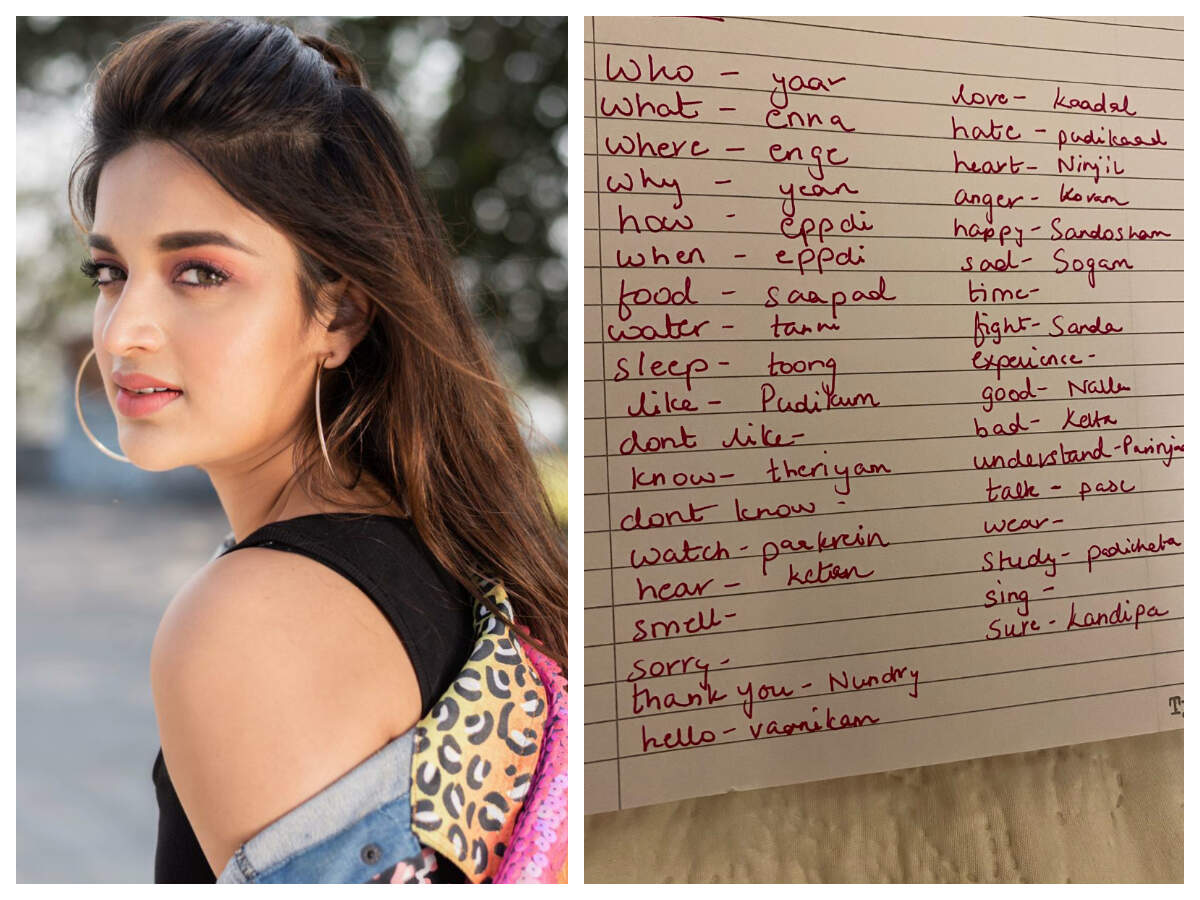 who - yaar
what - enna
where - enge
why - yean
how - eppdi
when - eppdi
food - saapad
water - tanni
sleep - toong
like - Pudikum
dont like -
know - theriyam
dont know -
watch - parkrein
hear - ketan
smell -
sorry -
thank you - Nundry
hello - vaanikam
love - kaadal
hate - pudikaad
heart - Ninjil
anger - Kovam
happy - Sandosham
sad - Sogam
time -
fight - Sanda
experience -
good - Nalla
bad - Ketta
understand -
talk - pase
wear -
study - padicheta
sing -
sure - kandipa